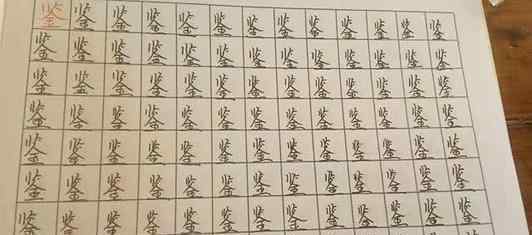 鉴鉴鉴鉴鉴鉴鉴鉴鉴鉴鉴鉴鉴
鉴鉴鉴鉴鉴鉴鉴鉴鉴鉴鉴鉴鉴
鉴鉴鉴鉴鉴鉴鉴鉴鉴鉴鉴鉴鉴
鉴鉴鉴鉴鉴鉴鉴鉴鉴鉴鉴鉴鉴
鉴鉴鉴鉴鉴鉴鉴鉴鉴鉴鉴鉴鉴
鉴鉴鉴鉴鉴鉴鉴鉴鉴鉴鉴鉴鉴
鉴鉴鉴鉴鉴鉴鉴鉴鉴鉴鉴鉴鉴